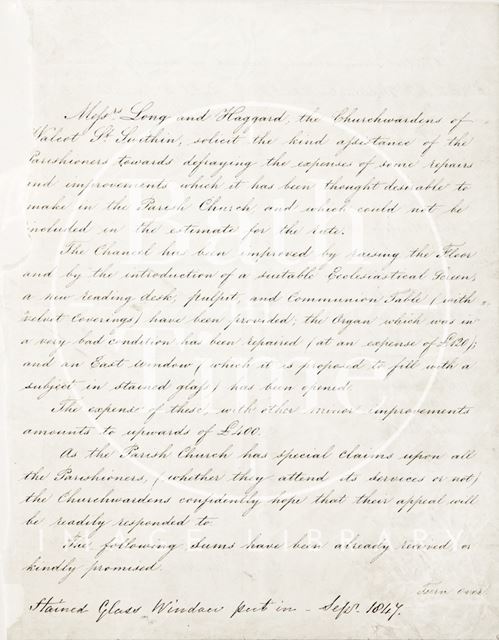 Messrs. Long and Haggard, the Churchwardens of
Walcot St. Swithin, solicit the kind assistance of the
Parishioners towards defraying the expenses of some repairs
and improvements which it has been thought desirable to
make in the Parish Church, and which could not be
included in the estimate for the rate.
The Chancel has been improved by raising the Floor
and by the introduction of a suitable Ecclesiastical Screen,
a new reading desk, pulpit, and Communion Table (with
Velvet Coverings) have been provided; the Organ which was in
a very bad condition has been repaired (at an expense of £120);
and an East Window (which it is proposed to fill with a
subject in stained glass) has been opened.
The expense of these, with other minor improvements
amounts to upwards of £400.
As the Parish Church has special claims upon all
the Parishioners, (whether they attend its services or not)
the Churchwardens confidently hope that their appeal will
be readily responded to.
The following Sums have been already received or
kindly promised.
Turn over.
Stained Glass Window put in - Sepr. 1847.
Bath
in
Time
IMAGE LIBRARY